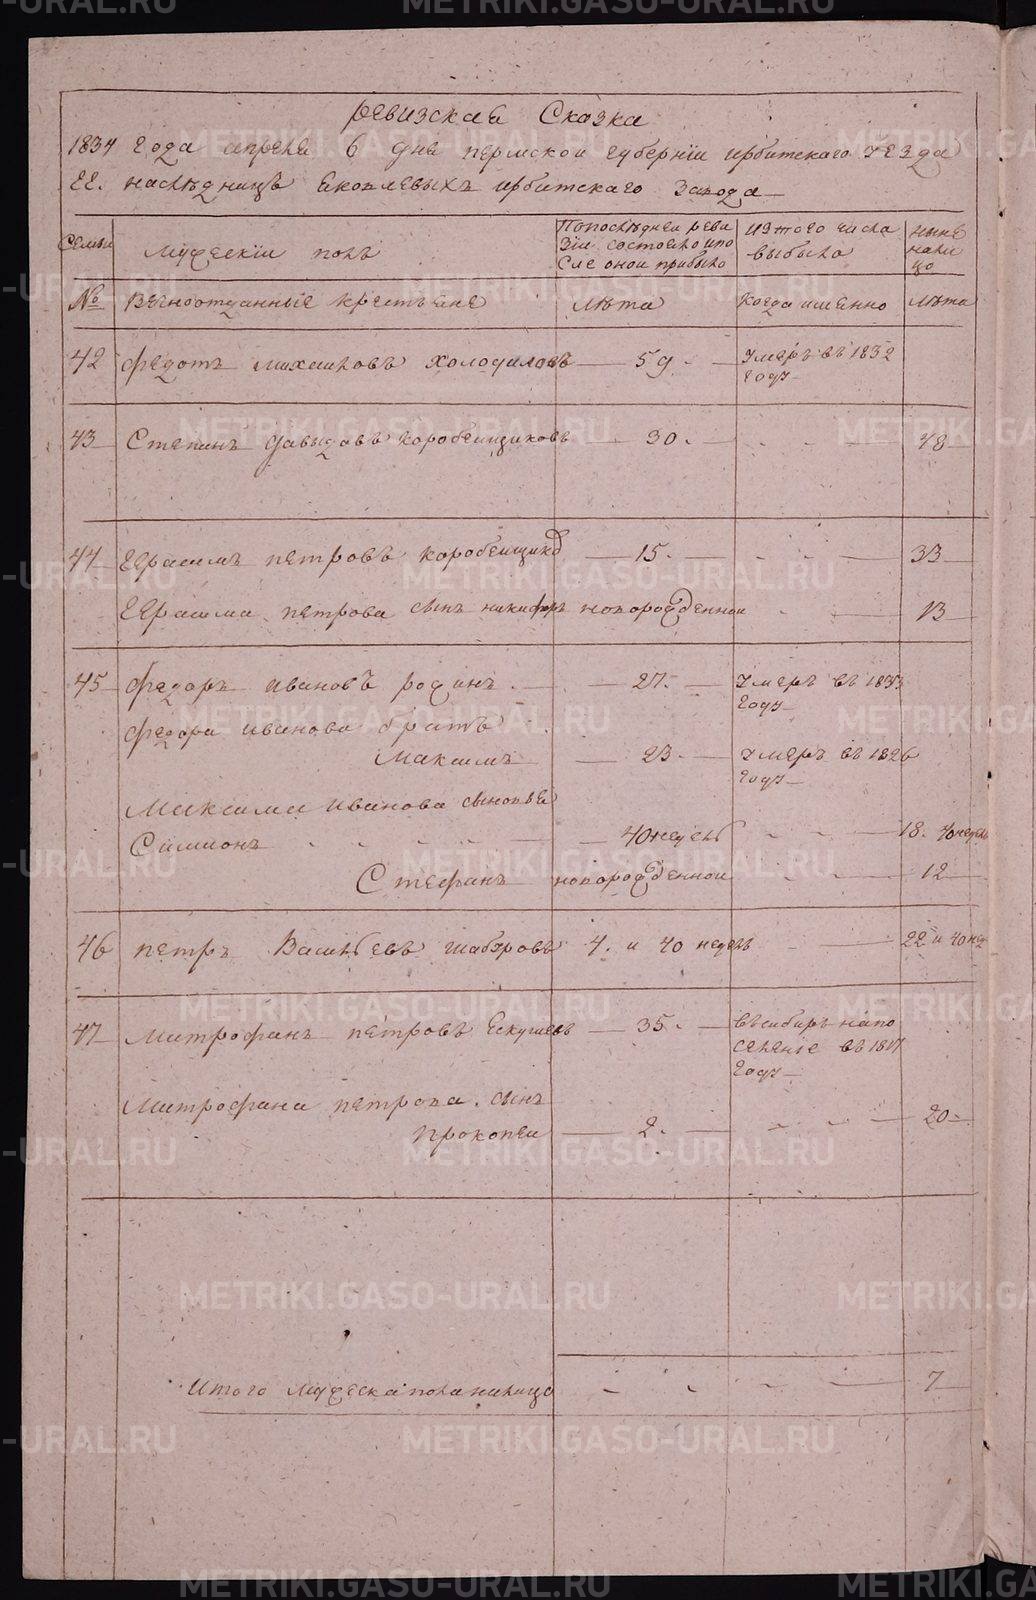 ревизская Сказка
1834 года апреля 6 дня пермской губернiи ирбитскаго уезда
ГГ. наслѣдницъ яковлевыхъ ирбитскаго завода
Семьи
мужескiи полъ
По последнеи реви
зiи состояло и по
сле онои прибыло
изтого числа
выбыло
ныне
нали
цо
№
Вечноотданные крестьяне
лѣта
когда именно
лѣта
42 федотъ михаиловъ холодиловъ 59 умеръ въ 1832
году
43 Степанъ давыдовъ коробеищиковъ 30 48
44 герасимъ петровъ коробеищиковъ 15 33
герасима петрова сынъ никифоръ новорожденнои 13
45 федоръ ивановъ родинъ 27 умеръ въ 1833
году
федора иванова братъ
Максимъ 23 умеръ въ 1826
году
Максима иванова сыновья
Симионъ 40 недель 18. 40 недель
Стефанъ новорожденнои 12
46 петръ Васильевъ шабуровъ 4. и 40 недель 22 и 40 нед
47 митрофанъ петровъ 35 въ сибирь на по
селенiе въ 1817
году
Митрофана петрова сынъ
прокопеи 2 20
итого мужеска пола налицо 7
METRIKI.GASO-URAL.RU